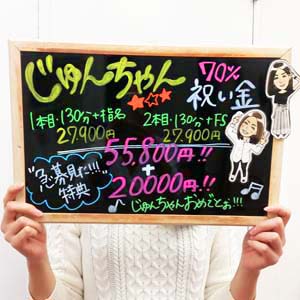 じゅんちゃん
70%
祝い金
1本目:130分+指名
27,900円
2本目:130分+FS
27,900円
55,800円!!
+
20000円!!
"急募見た!!!"
特典
じゅんちゃんおめでとぉ!!!